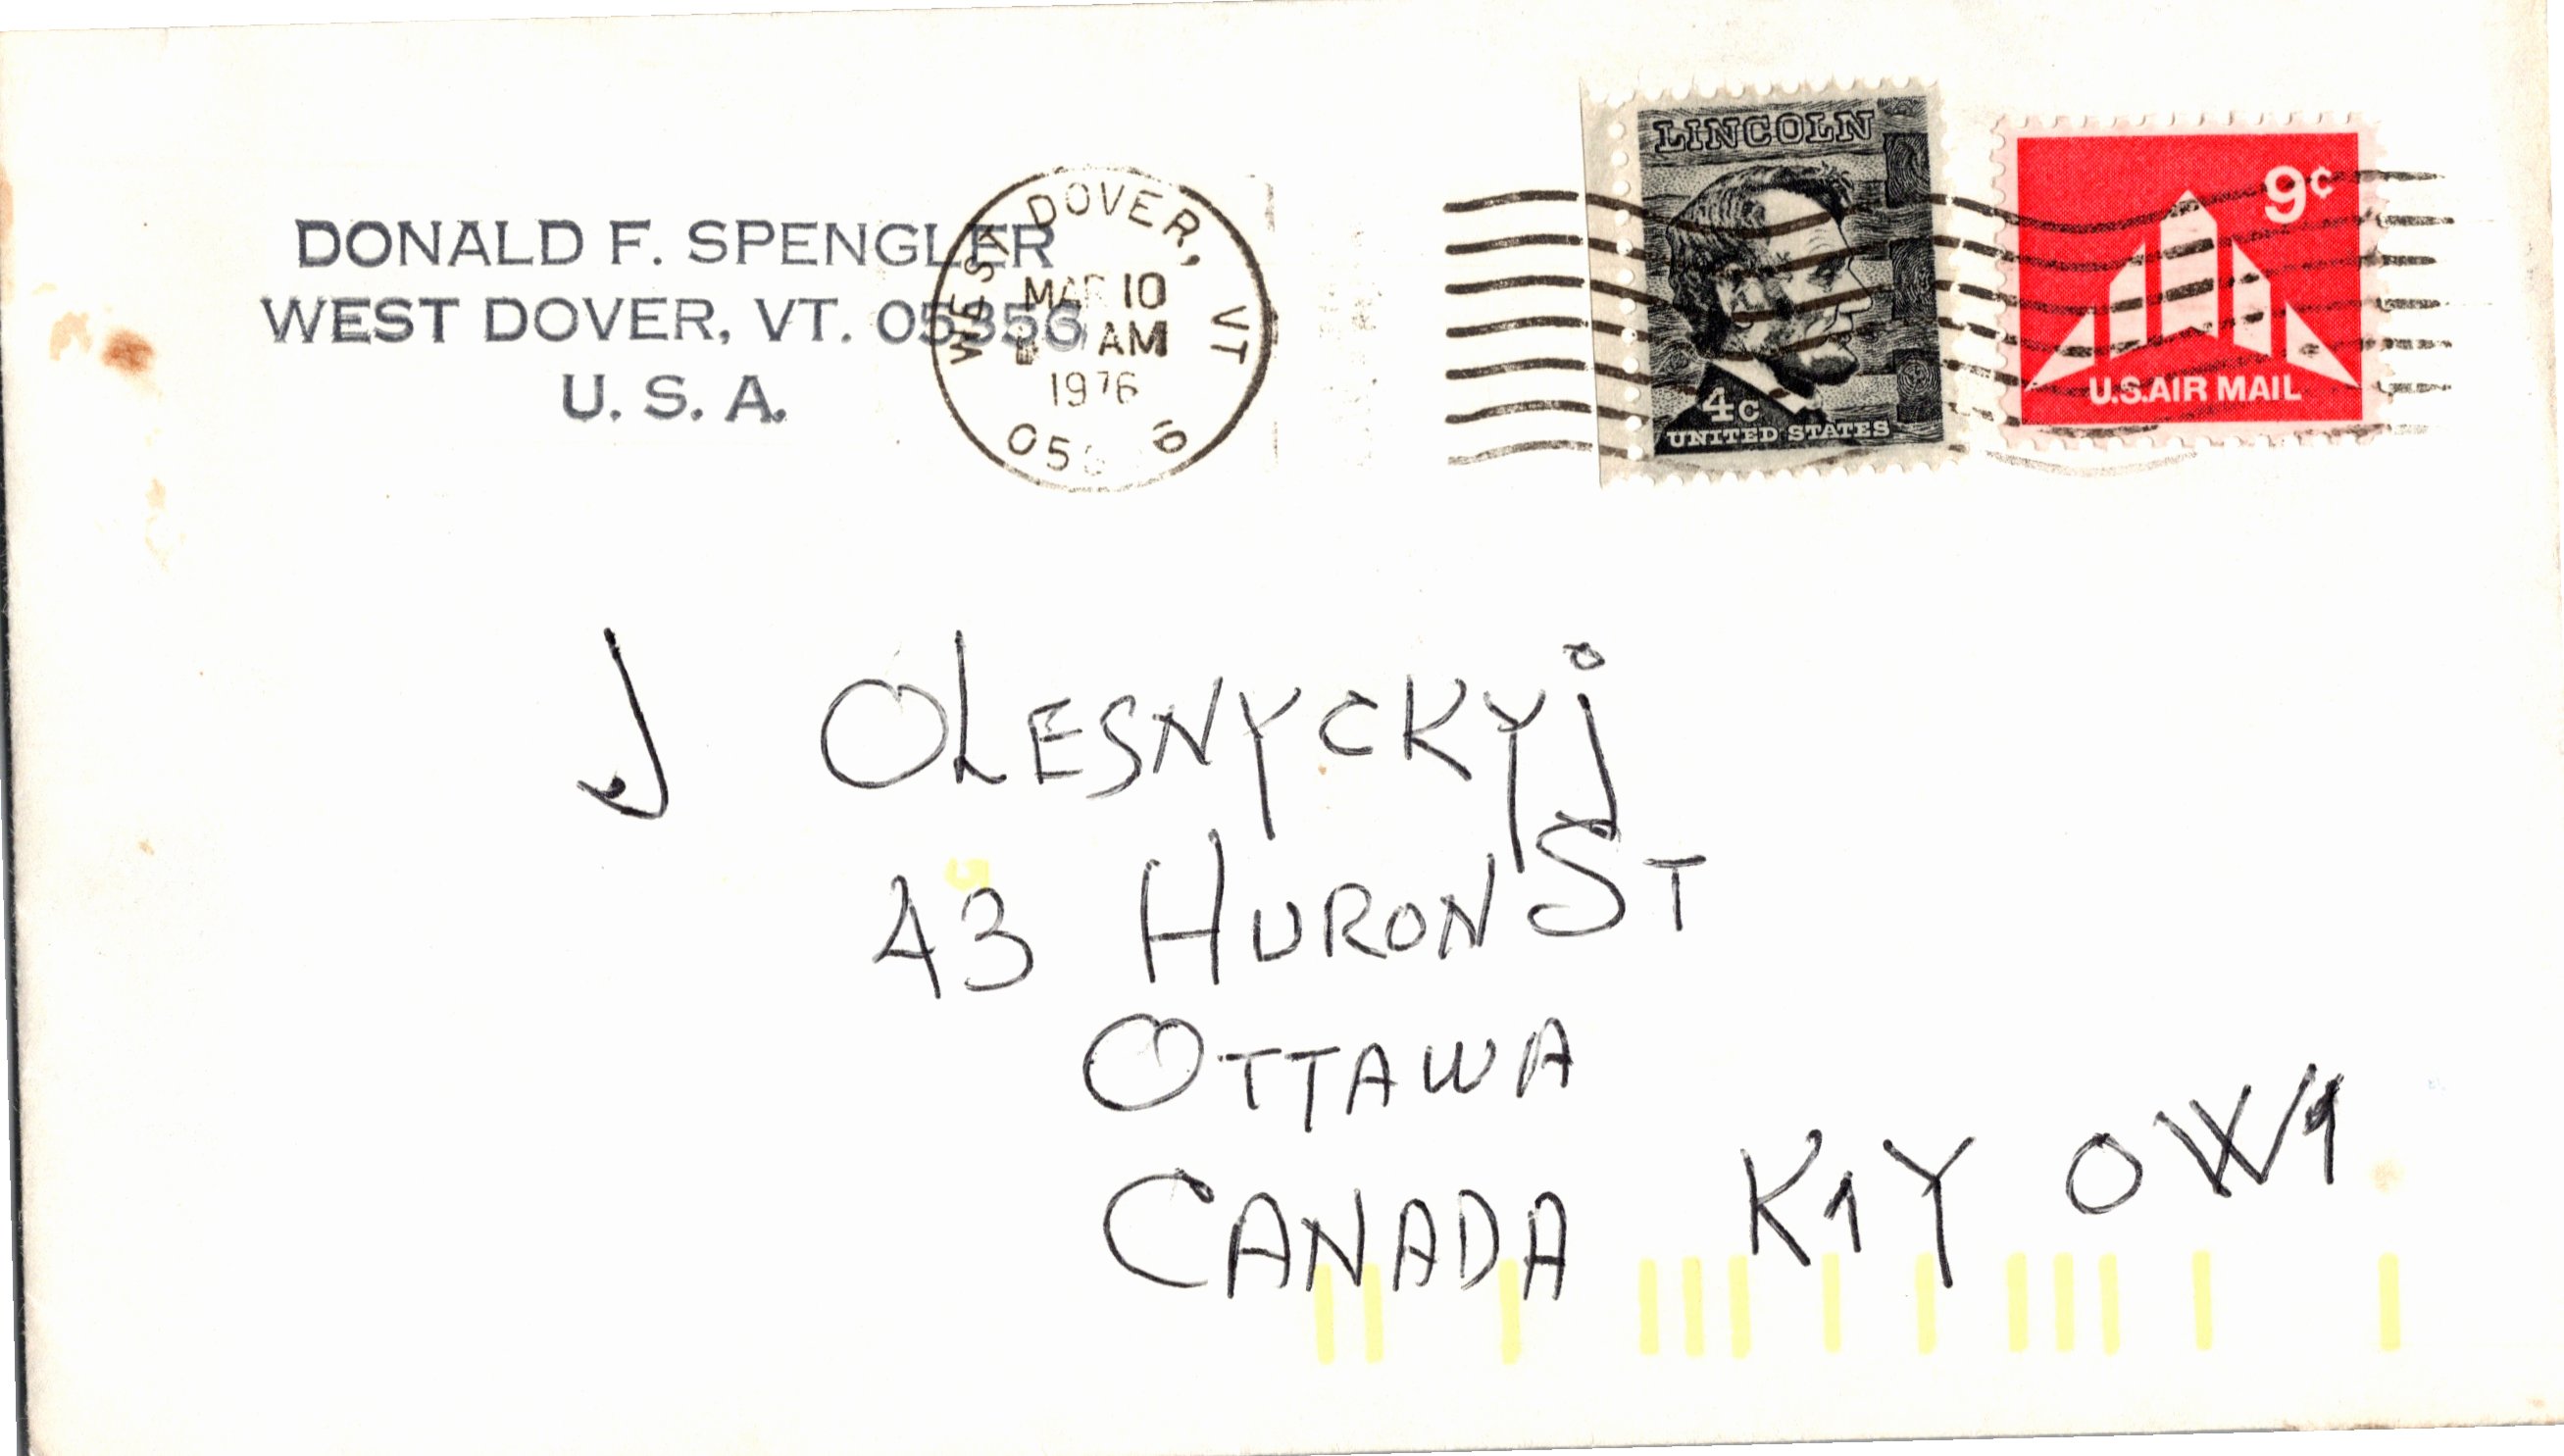 DONALD F. SPENGLER
WEST DOVER, VT. 05356
U. S. A.
WEST DOVER, VT
MAR 10
AM
1976
LINCOLN
4c
UNITED STATES
9c
U.S. AIR MAIL
J OLESNYCKYj
43 HURON ST
OTTAWA
CANADA K1Y 0W1